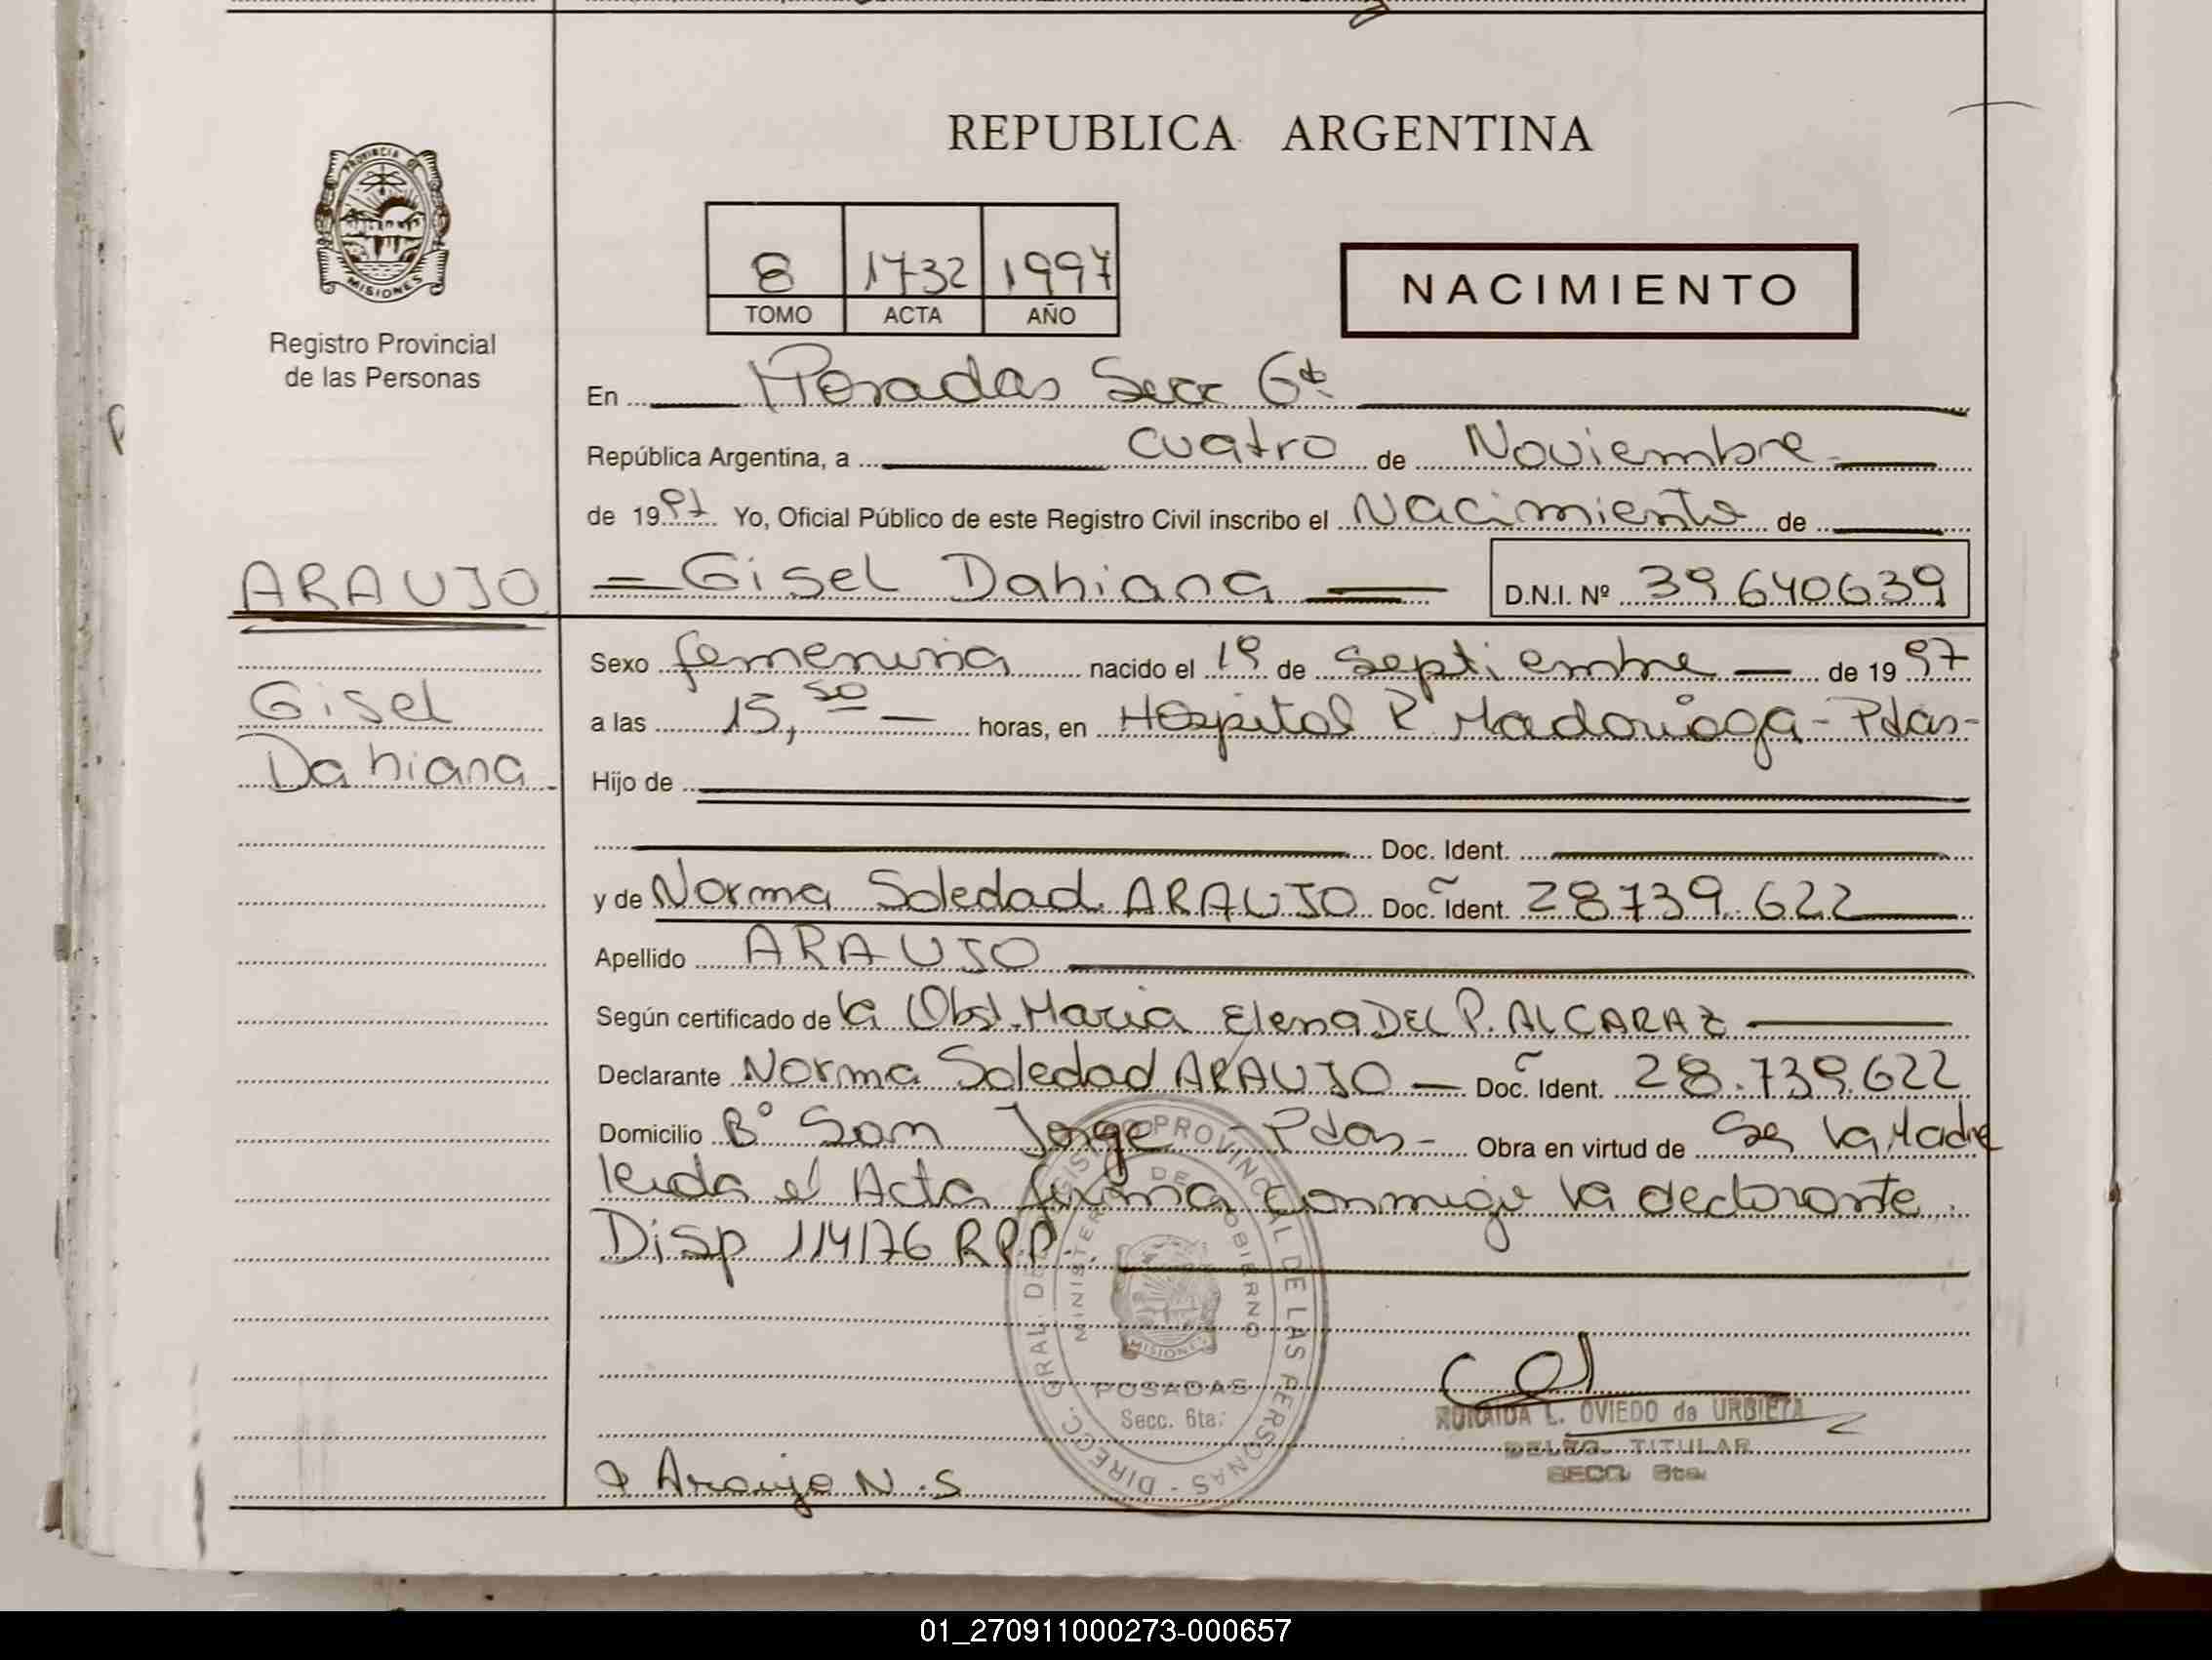 REPUBLICA ARGENTINA
PROVINCIA DE
MISIONES
Registro Provincial
de las Personas
8 1732 1997
TOMO ACTA AÑO
NACIMIENTO
En Posadas Secc 6ta
República Argentina, a cuatro de Noviembre
de 1997 Yo, Oficial Público de este Registro Civil inscribo el Nacimiento de
ARAUJO
Gisel Dahiana D.N.I. Nº 39640639
Gisel
Dahiana
Sexo femenina nacido el 19 de Septiembre de 1997
a las 15,50 horas, en Hospital R Madariaga - Pdas-
Hijo de
Doc. Ident.
y de Norma Soledad ARAUJO Doc. Ident. 28739.622
Apellido ARAUJO
Según certificado de la Obst. Maria Elena DEL P. ALCARAZ
Declarante Norma Soledad ARAUJO Doc. Ident. 28.739.622
Domicilio Bº San Jorge - Pdas - Obra en virtud de Ser la Madre
leida el Acta firma conmigo la declarante.
Disp 114/76 RPP.
DIRECC. GRAL. DEL REGISTRO PROVINCIAL DE LAS PERSONAS
MINISTERIO DE GOBIERNO
MISIONES
POSADAS
Secc. 6ta.
L. OVIEDO de URBIETA
DELEG. TITULAR
SECC. 6ta.
Araujo N.S
01_270911000273-000657